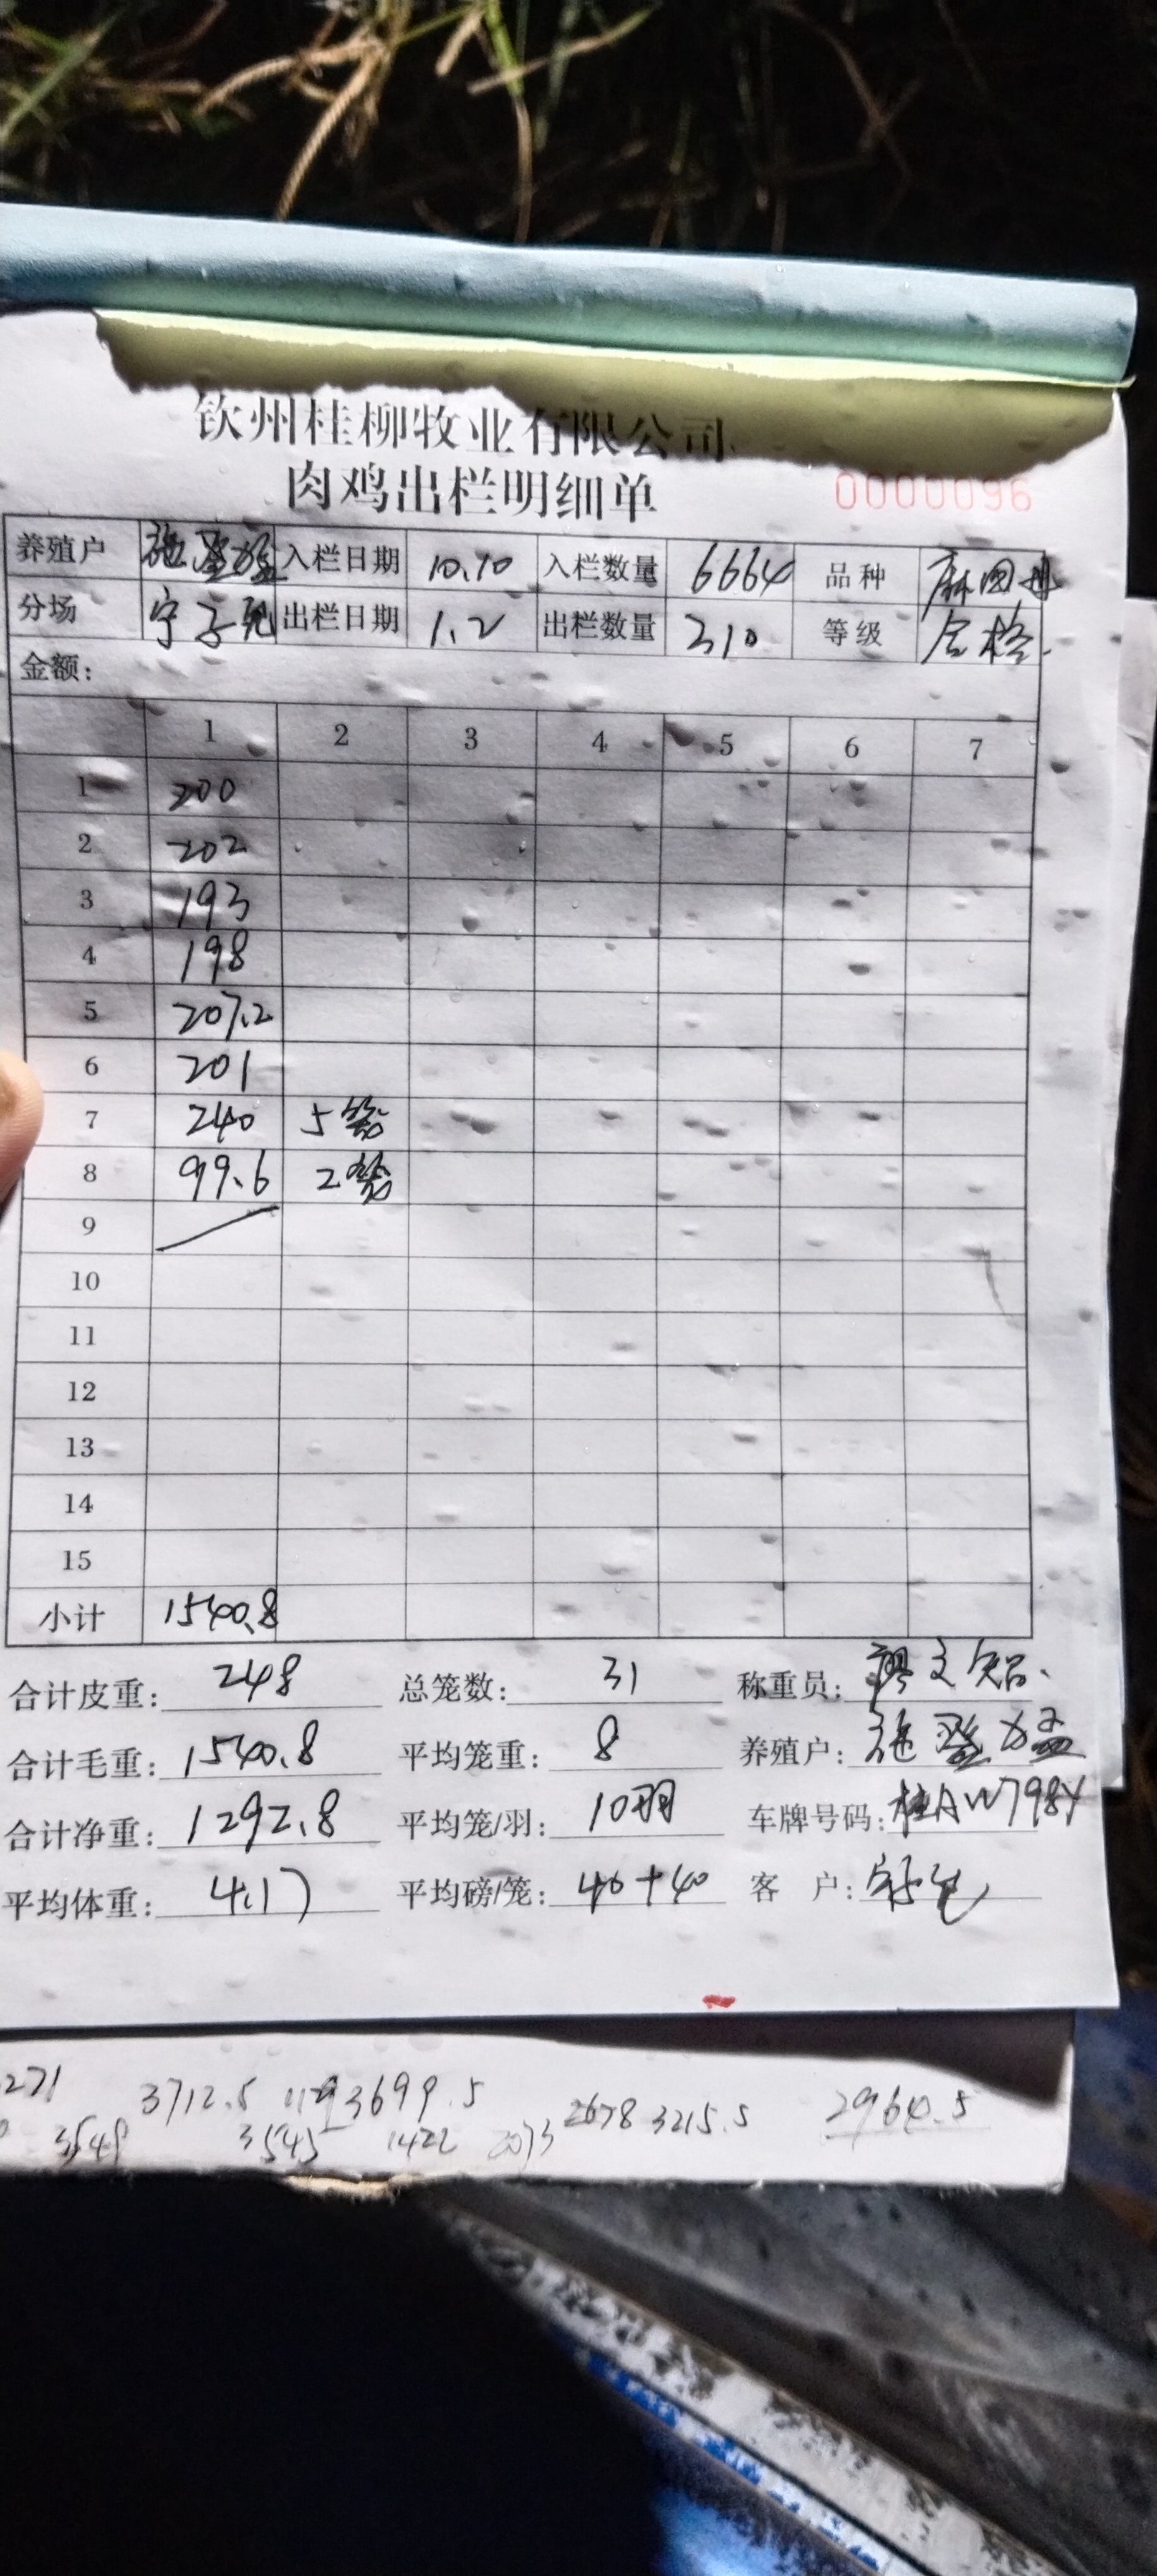 钦州桂柳牧业有限公司
肉鸡出栏明细单 0000096
养殖户 施 入栏日期 10.10 入栏数量 6664 品种 麻
分场 宁 出栏日期 1.2 出栏数量 310 等级 合格.
金额:
1 2 3 4 5 6 7
1 200
2 202
3 193
4 198
5 207.2
6 201
7 240 5笼
8 99.6 2笼
9
10
11
12
13
14
15
小计 1540.8
合计皮重: 248 总笼数: 31 称重员: 文
合计毛重: 1540.8 平均笼重: 8 养殖户: 施
合计净重: 1292.8 平均笼/羽: 10羽 车牌号码: 桂AW798Y
平均体重: 4.17 平均磅/笼: 40+40 客 户:
271 3712.5 3699.5 2678 3215.5 2964.5
3549 3545 1422 2073